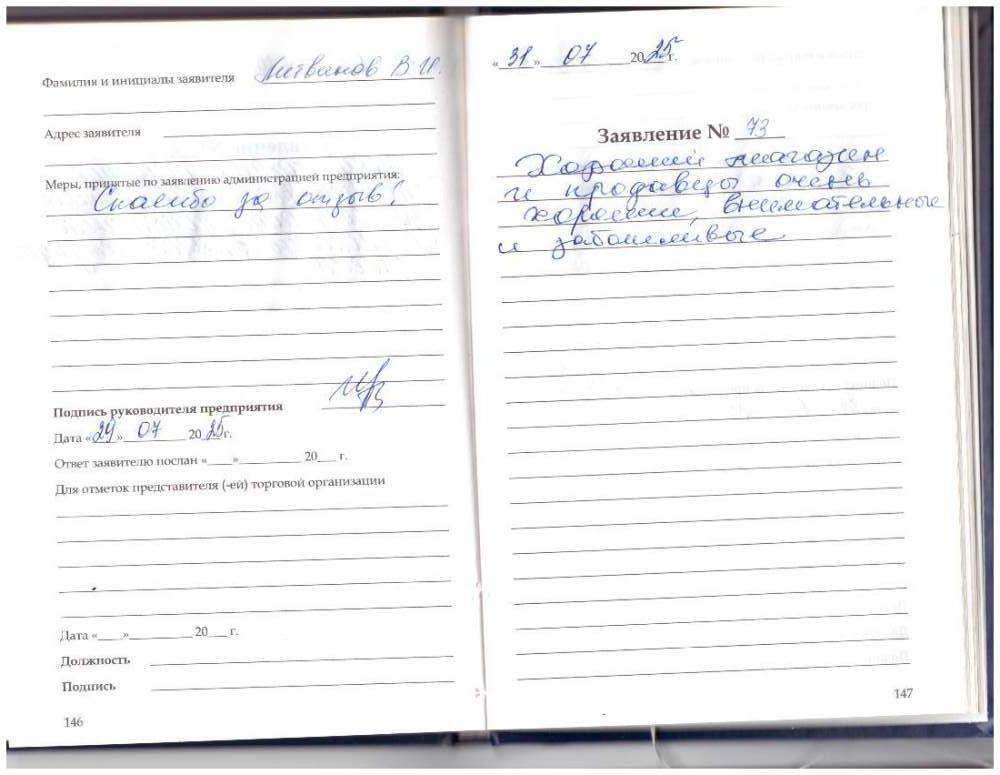 Фамилия и инициалы заявителя Литвинов В И.
Адрес заявителя
Меры, принятые по заявлению администрацией предприятия:
Спасибо за отзыв!
Подпись руководителя предприятия
Дата «29» 07 2025г.
Ответ заявителю послан «___»__________ 20___ г.
Для отметок представителя (-ей) торговой организации
Дата «___»__________ 20___ г.
Должность
Подпись
146
«31» 07 2025г.
Заявление № 73
Хороший магазин
и продавцы очень
хорошие, внимательные
и заботливые
147